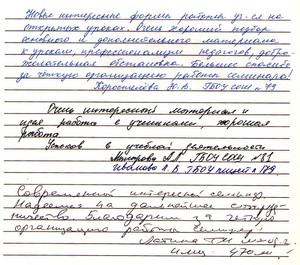 Новые интересные формы работы уч-ся на
открытых уроках. Очень хороший подбор
основного и дополнительного материала
к урокам, профессионализм педагогов, добро-
желательная обстановка. Большое спасибо
за чёткую организацию работы семинара!
Коростелёва Н.В. ГБОУ СОШ №79
Очень интересный материал и
идея работа с учениками, хорошая
работа
Успехов в учебной деятельности
ГБОУ СОШ №81
Иванова А.В. ГБОУ лицей №179
Современный интересный семинар.
Надеемся на дальнейшее сотруд-
ничество. Благодарим за чёткую
организацию работы семинара!
Латина Т.Н.
470